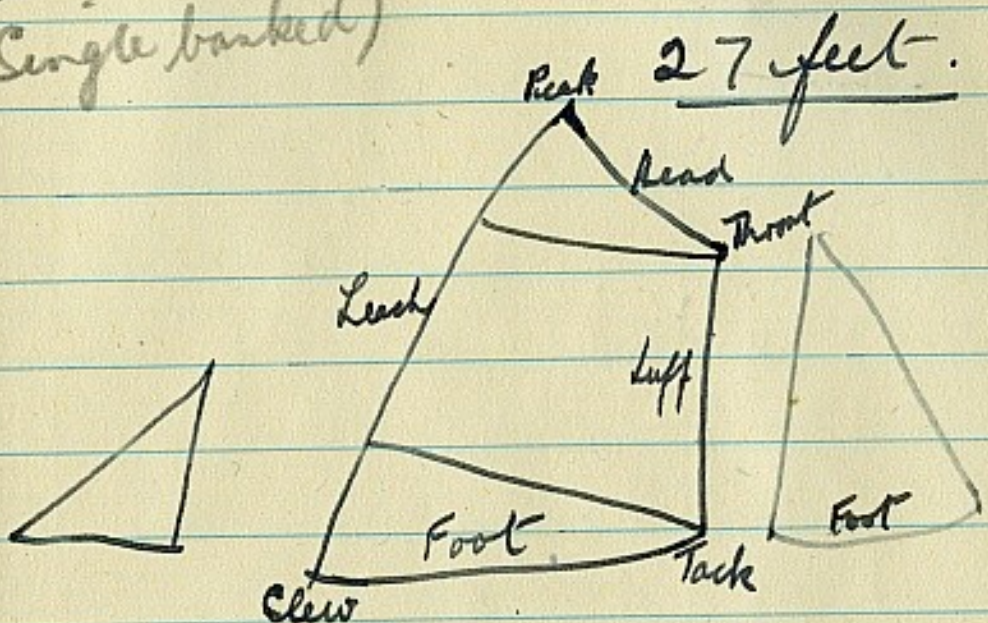 Single banked)
27 feet.
Peak
Head
Throat
Leach
Luff
Foot
Foot
Tack
Clew